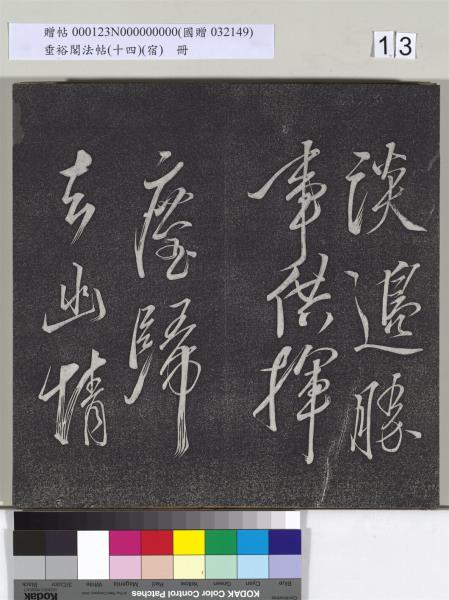 贈帖 000123N000000000(國贈 032149)
垂裕閣法帖(十四)(宿) 冊
13
談邉勝
事供揮
麈歸
去幽情
Blue Cyan Green Yellow Red Magenta White 3/Color Black
KODAK Color Control Patches
Kodak